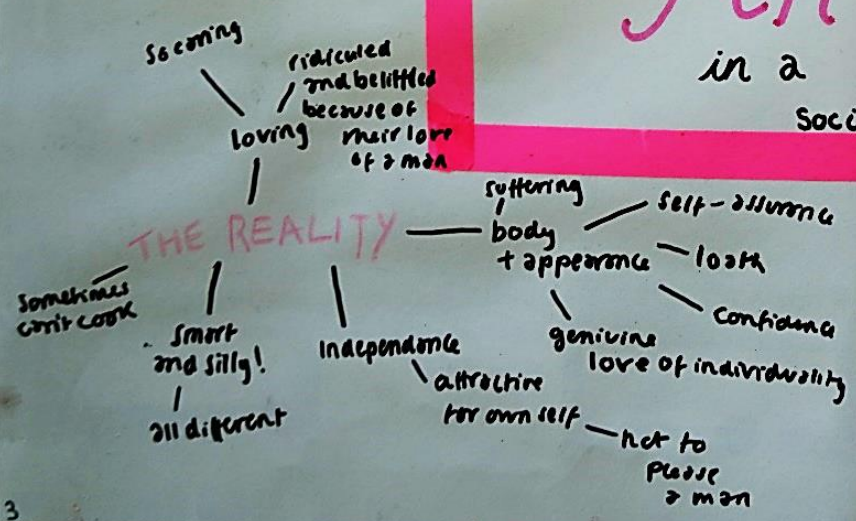 in a
Soci
so caring
ridiculed
and belittled
because of
their love
of a man
loving
THE REALITY
suffering
body
+ appearance
self-assurance
loath
confidence
genivine
love of individuality
sometimes
can't cook
smart
and silly!
all different
Independance
attractive
for own self
not to
please
a man
3